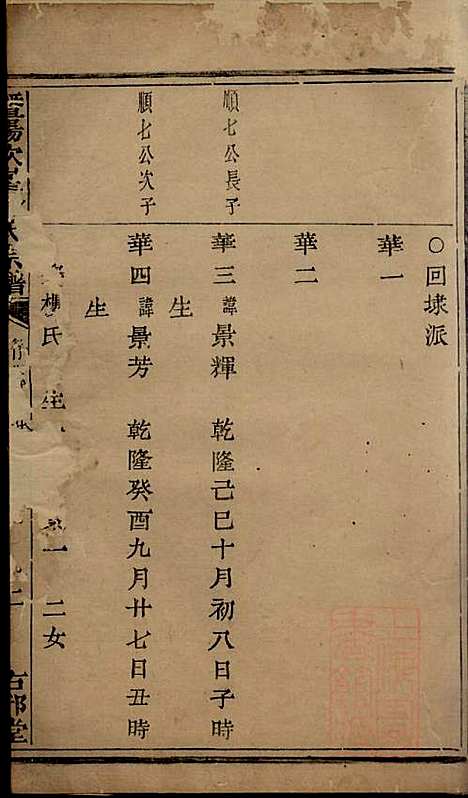 ○回埭派
華一
華二
順七公長子
華三 諱景輝 乾隆己巳十月初八日子時
生
順七公次子
華四 諱景芳 乾隆癸酉九月廿七日丑時
生
楊氏 一 二女
族譜